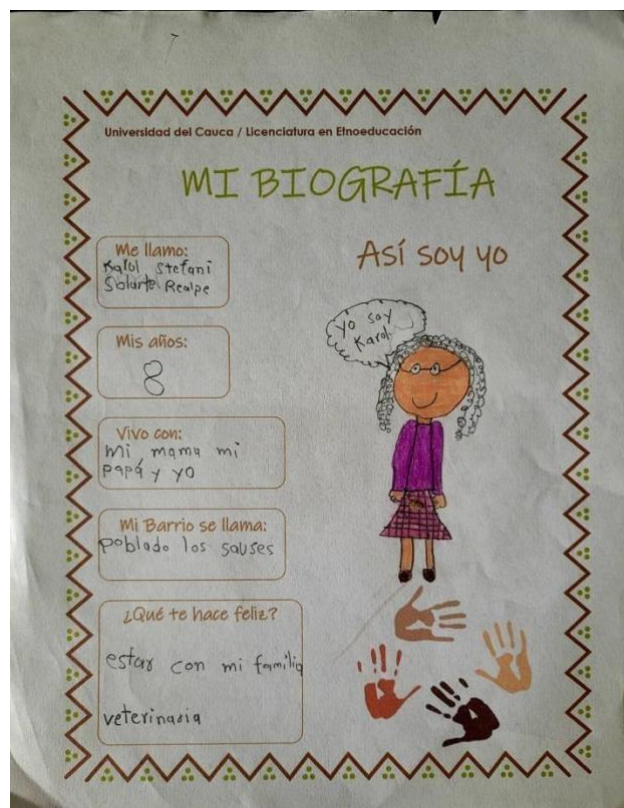 Universidad del Cauca / Licenciatura en Etnoeducación
MI BIOGRAFÍA
Así soy yo
Me llamo:
Karol Stefani
Solarte Realpe
Mis años:
8
Vivo con:
mi mama mi
papá y yo
Mi Barrio se llama:
poblado los sauses
¿Qué te hace feliz?
estar con mi familia
veterinaria
yo soy
Karol